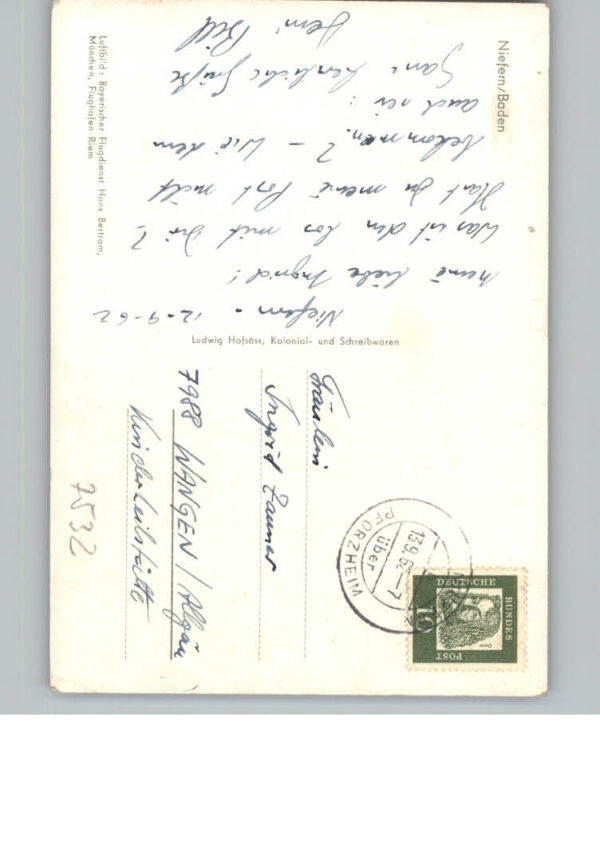 Niefern/Baden
Niefern - 12-9-62
meine liebe Ingrid!
Was ist den los mit Dir?
Hast Du meine Post nicht
bekommen? - Wie dem
auch sei:
Ganz herzliche Grüße
Dein Bill
Luftbild: Bayerischer Flugdienst Hans Bertram,
München, Flughafen Riem
Ludwig Hofsäss, Kolonial- und Schreibwaren
DEUTSCHE
BUNDES
POST
10
Dürer
13.9.62-7
über
PFORZHEIM
Fräulein
Ingrid
7988 WANGEN / Allgäu
Kinderheilstätte
7532